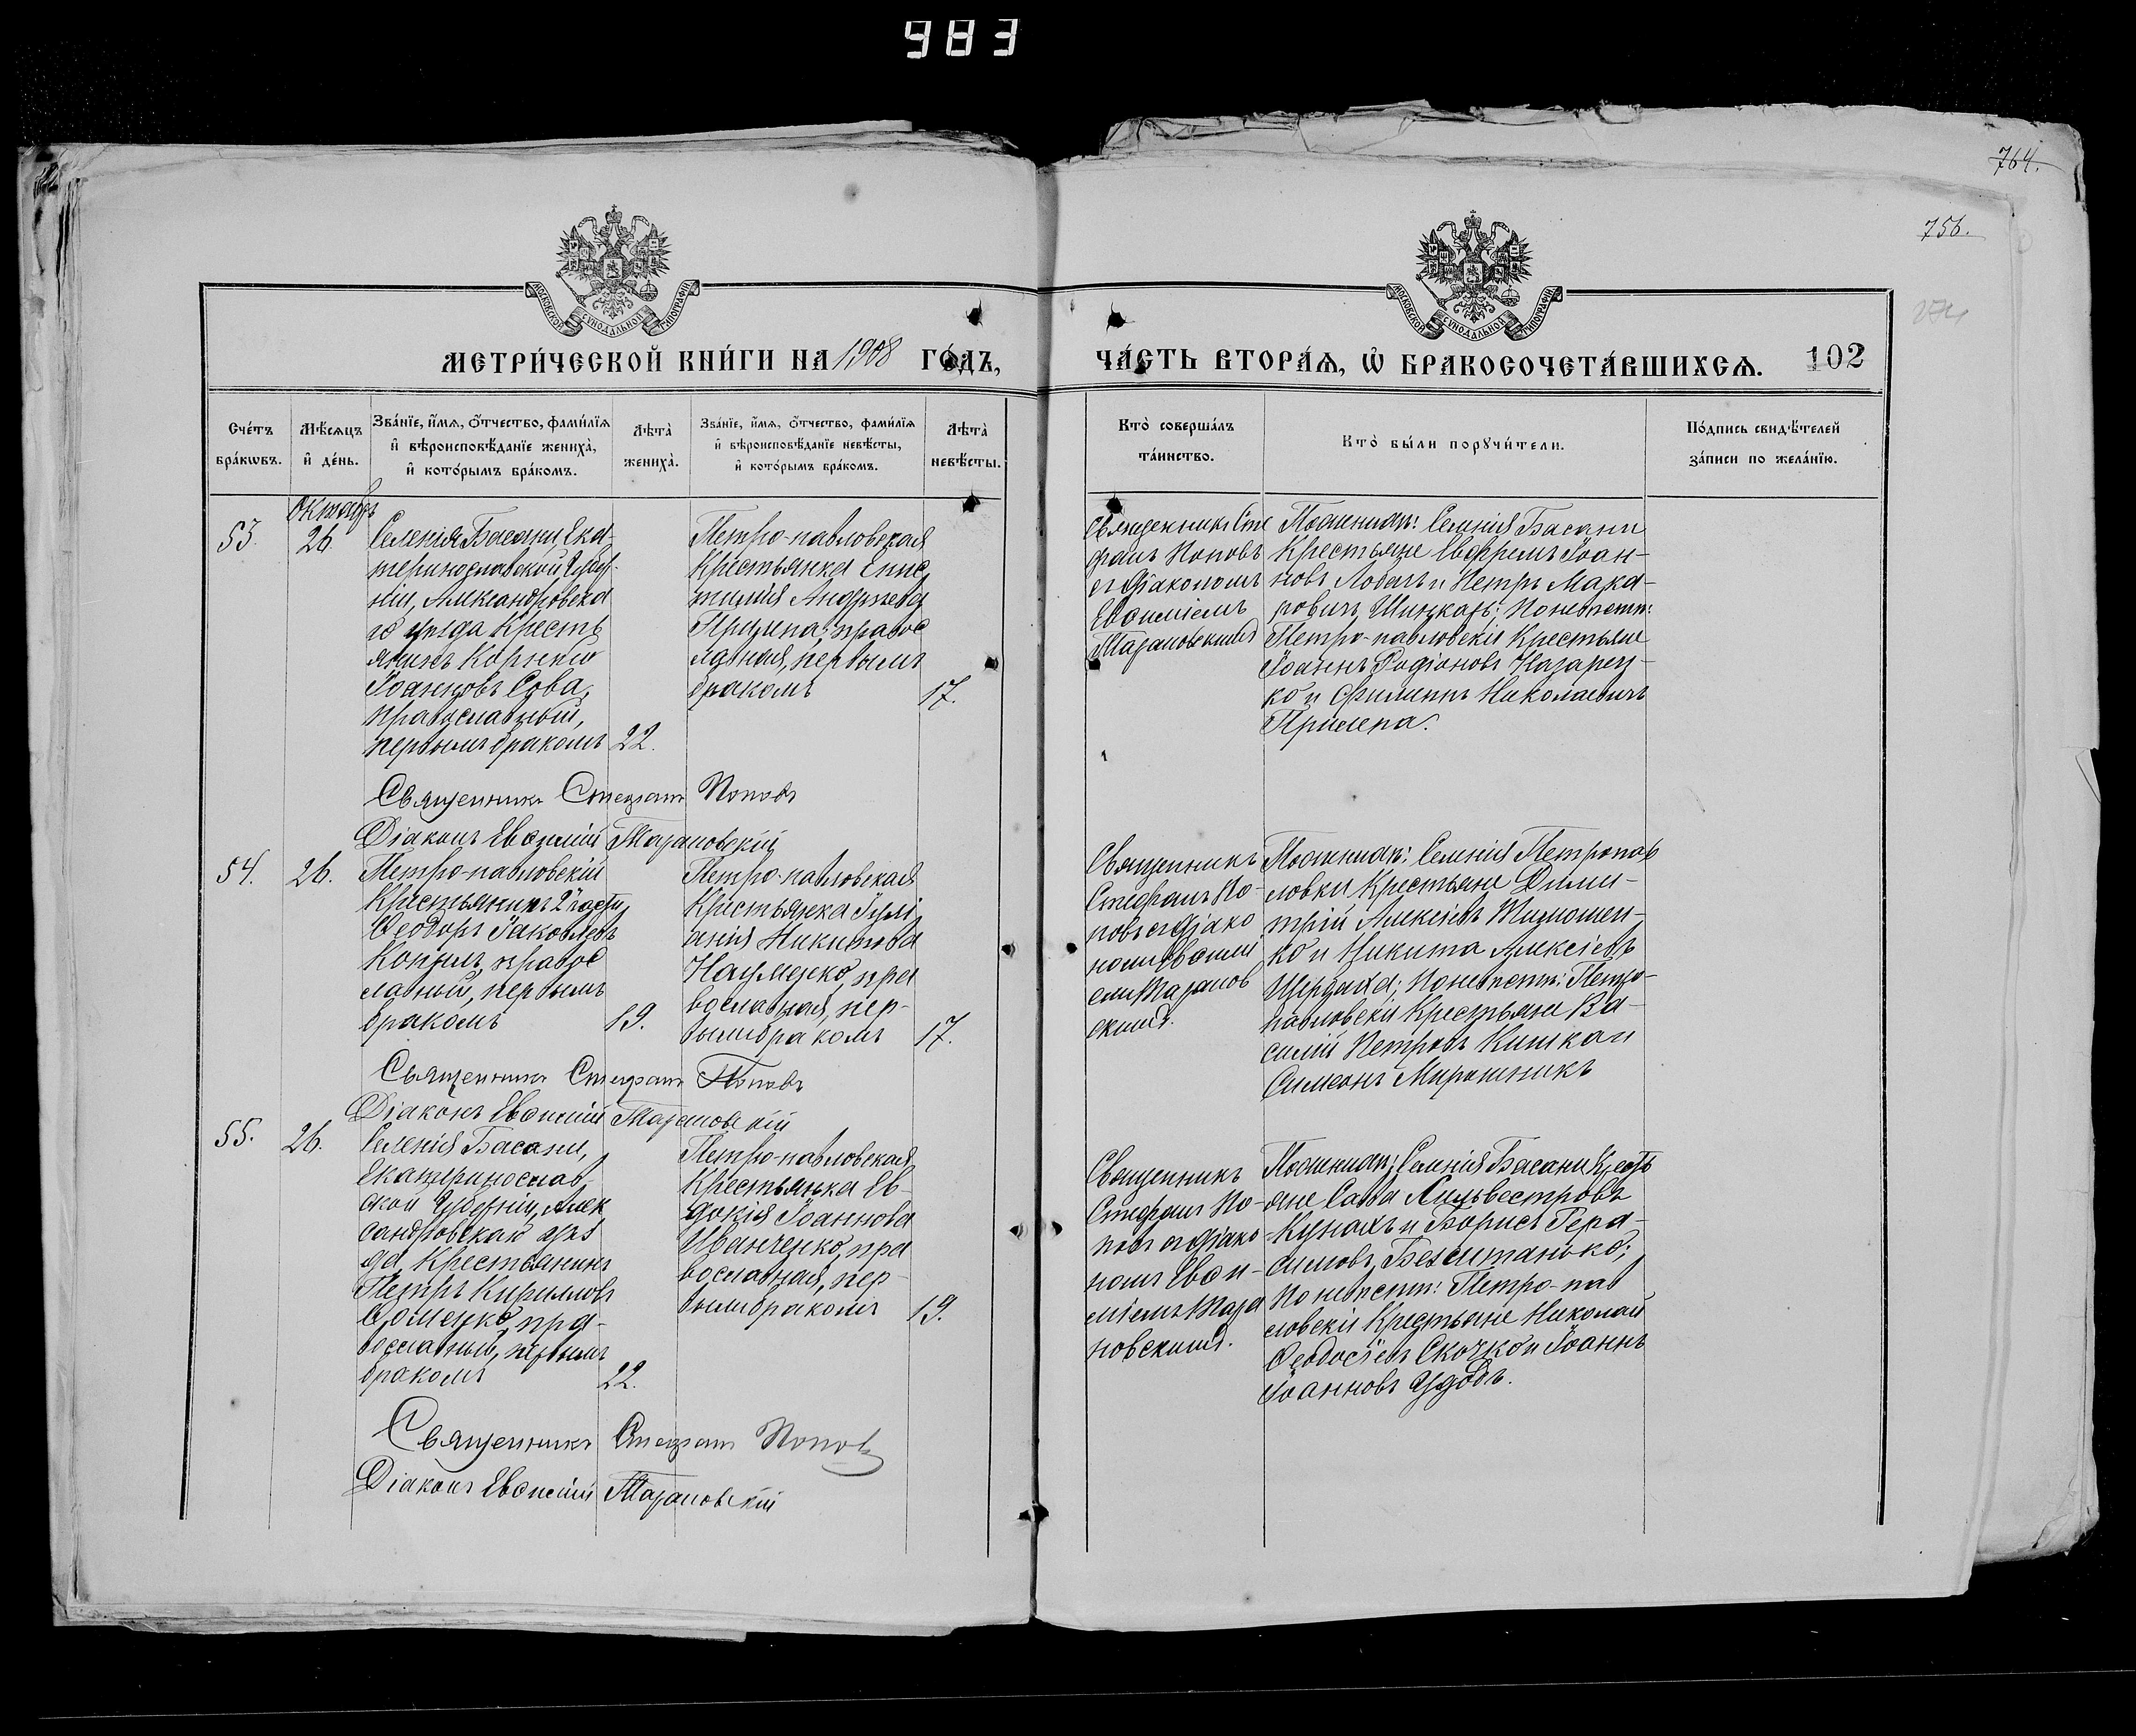 983
764.
756.
МОСКОВСКОЙ СѴНОДАЛЬНОЙ ТИПОГРАФІИ
МОСКОВСКОЙ СѴНОДАЛЬНОЙ ТИПОГРАФІИ
МЕТРИ́ЧЕСКОЙ КНИ́ГИ НА 1908 ГО́ДЪ,
ЧА́СТЬ ВТОРА́Я, Ѡ҆ БРАКОСОЧЕТА́ВШИХСѦ. 102
Сче́тъ бра́кѡвъ.
Мѣ́сѧцъ и҆ де́нь.
Зва́нїе, и҆́мѧ, ѻ҆́тчество, фами́лїѧ
и҆ вѣроисповѣ́данїе жениха̀,
и҆ кото́рымъ бра́комъ.
Лѣта̀ жениха̀.
Зва́нїе, и҆́мѧ, ѻ҆́тчество, фами́лїѧ
и҆ вѣроисповѣ́данїе невѣ́сты,
и҆ кото́рымъ бра́комъ.
Лѣта̀ невѣ́сты.
Кто̀ соверша́лъ та́инство.
Кто̀ бы́ли порꙋчи́тели.
По́дпись свидѣ́телей за́писи по жела́нїю.
Октябрь
53.
26.
Селенія Басани, Ека
теринославской Губер
ніи, Александровска
го уѣзда Кресть
янинъ
Іоанновъ Сова,
православный,
первымъ бракомъ
22.
Петро-павловская
Крестьянка
Андреева
Прилепа, правос
лавная, первымъ
бракомъ
17.
Священникъ Сте
фанъ Поповъ
съ діакономъ
Евѳиміемъ
Тарановскимъ
Селенія Басани
Крестьяне Ефремъ Іоан-
новъ и Петръ Мака-
ровичъ По невѣстѣ:
Петро-павловскіе Крестьяне
Іоаннъ Родіоновъ Назарен-
ко и Филиппъ Николаевичъ
Прилепа.
Священникъ Стефанъ Поповъ
Діаконъ Евѳимій Тарановскій
54.
26.
Петро-павловскій
Крестьянинъ
Ѳеодоръ Іаковлевъ
Копылъ, правос
лавный, первымъ
бракомъ
19.
Петро-павловская
Крестьянка Іулі
анія Никитова
Науменко, пра
вославная, пер-
вымъ бракомъ
17.
Священникъ
Стефанъ По-
повъ съ діако
номъ Евѳимі
емъ Таранов
скимъ.
Селенія Петропав
ловки Крестьяне Дими-
трій Алексіевъ Тимошен-
ко и Никита Алексіевъ
По невѣстѣ: Петро-
павловскіе Крестьяне Ва-
силій Петровъ Кишка и
Симеонъ Мирошникъ
Священникъ Стефанъ Поповъ
Діаконъ Евѳимій Тарановскій
55.
26.
Селенія Басани,
Екатеринослав
ской Губерніи, Алек
сандровскаго уѣз
да, Крестьянинъ
Петръ Кирилловъ
пра-
вославный, первымъ
бракомъ
22.
Петро-павловская
Крестьянка Ев-
докія Іоаннова
Иванченко, пра
вославная, пер-
вымъ бракомъ
19.
Священникъ
Стефанъ По-
повъ съ діако
номъ Евѳи-
міемъ Тара
новскимъ.
Селенія Басани Кресть
яне Сава Сильвестровъ
Кунахъ и Борисъ Гера-
симовъ
По невѣстѣ: Петро-пав
ловскіе Крестьяне Николай
Ѳеодосіевъ Скочко и Іоаннъ
Іоанновъ Удодъ.
Священникъ Стефанъ Поповъ
Діаконъ Евѳимій Тарановскій